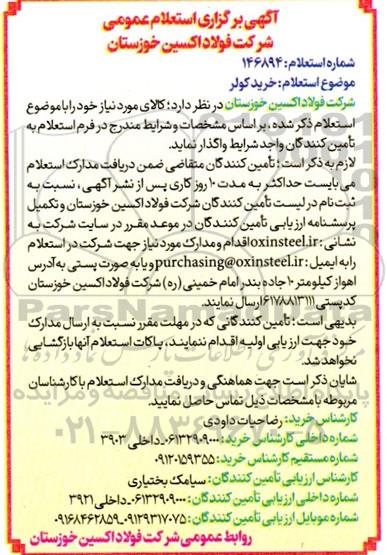 آگهی برگزاری استعلام عمومی
شرکت فولاد اکسین خوزستان
شماره استعلام: ۱۴۶۸۹۴
موضوع استعلام: خرید کولر
شرکت فولاد اکسین خوزستان در نظر دارد؛ کالای مورد نیاز خود را با موضوع
استعلام ذکر شده، بر اساس مشخصات و شرایط مندرج در فرم استعلام به
تأمین کنندگان واجد شرایط واگذار نماید.
لازم به ذکر است؛ تأمین کنندگان متقاضی ضمن دریافت مدارک استعلام
می بایست حداکثر به مدت ۱۰ روز کاری پس از نشر آگهی، نسبت به
ثبت نام در لیست تأمین کنندگان شرکت فولاد اکسین خوزستان و تکمیل
پرسشنامه ارزیابی تأمین کنندگان در موعد مقرر در سایت شرکت به
نشانی: oxinsteel.ir اقدام و مدارک مورد نیاز جهت شرکت در استعلام
را به ایمیل: purchasing@oxinsteel.ir و یا به صورت پستی به آدرس
اهواز کیلومتر ۱۰ جاده بندر امام خمینی (ره) شرکت فولاد اکسین خوزستان
کدپستی ۶۱۷۸۸۱۳۱۱۱ ارسال نمایند.
بدیهی است؛ تأمین کنندگانی که در مهلت مقرر نسبت به ارسال مدارک
خود جهت ارزیابی اولیه اقدام ننمایند، پاکات استعلام آنها بازگشایی
نخواهد شد.
شایان ذکر است جهت هماهنگی و دریافت مدارک استعلام با کارشناسان
مربوطه با مشخصات ذیل تماس حاصل نمایید.
کارشناس خرید: رضا حیات داودی
شماره داخلی کارشناس خرید: ۰۶۱۳۲۹۰۹۰۰۰ـ داخلی ۳۹۰۳
شماره مستقیم کارشناس خرید: ۰۹۱۲۰۱۵۹۳۵۵
کارشناس ارزیابی تأمین کنندگان: سیامک بختیاری
شماره داخلی ارزیابی تأمین کنندگان: ۰۶۱۳۲۹۰۹۰۰۰ـ داخلی ۳۹۲۱
شماره موبایل ارزیابی تأمین کنندگان: ۰۹۱۲۹۳۱۷۰۷۵ـ۰۹۱۶۸۴۶۲۸۵۹
روابط عمومی شرکت فولاد اکسین خوزستان